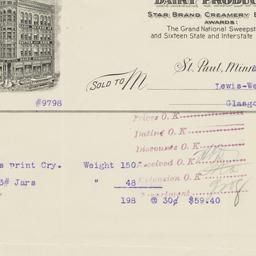 DAIRY PRODU
STAR BRAND CREAMERY B
AWARDS:
The Grand National Sweepst
and Sixteen State and Interstate
St. Paul, Minn
SOLD TO M
Lewis-We
#9798
Glasgo
Prices O. K.
Dating O. K.
Discounts O. K.
s Print Cry. Weight 150 Received O. K.
3# Jars " 48 Extension O. K.
198 @ 30¢ $59.40
Department